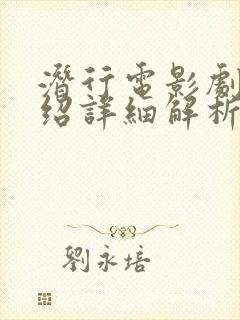 潛行電影劇
紹詳細解析
劉永培